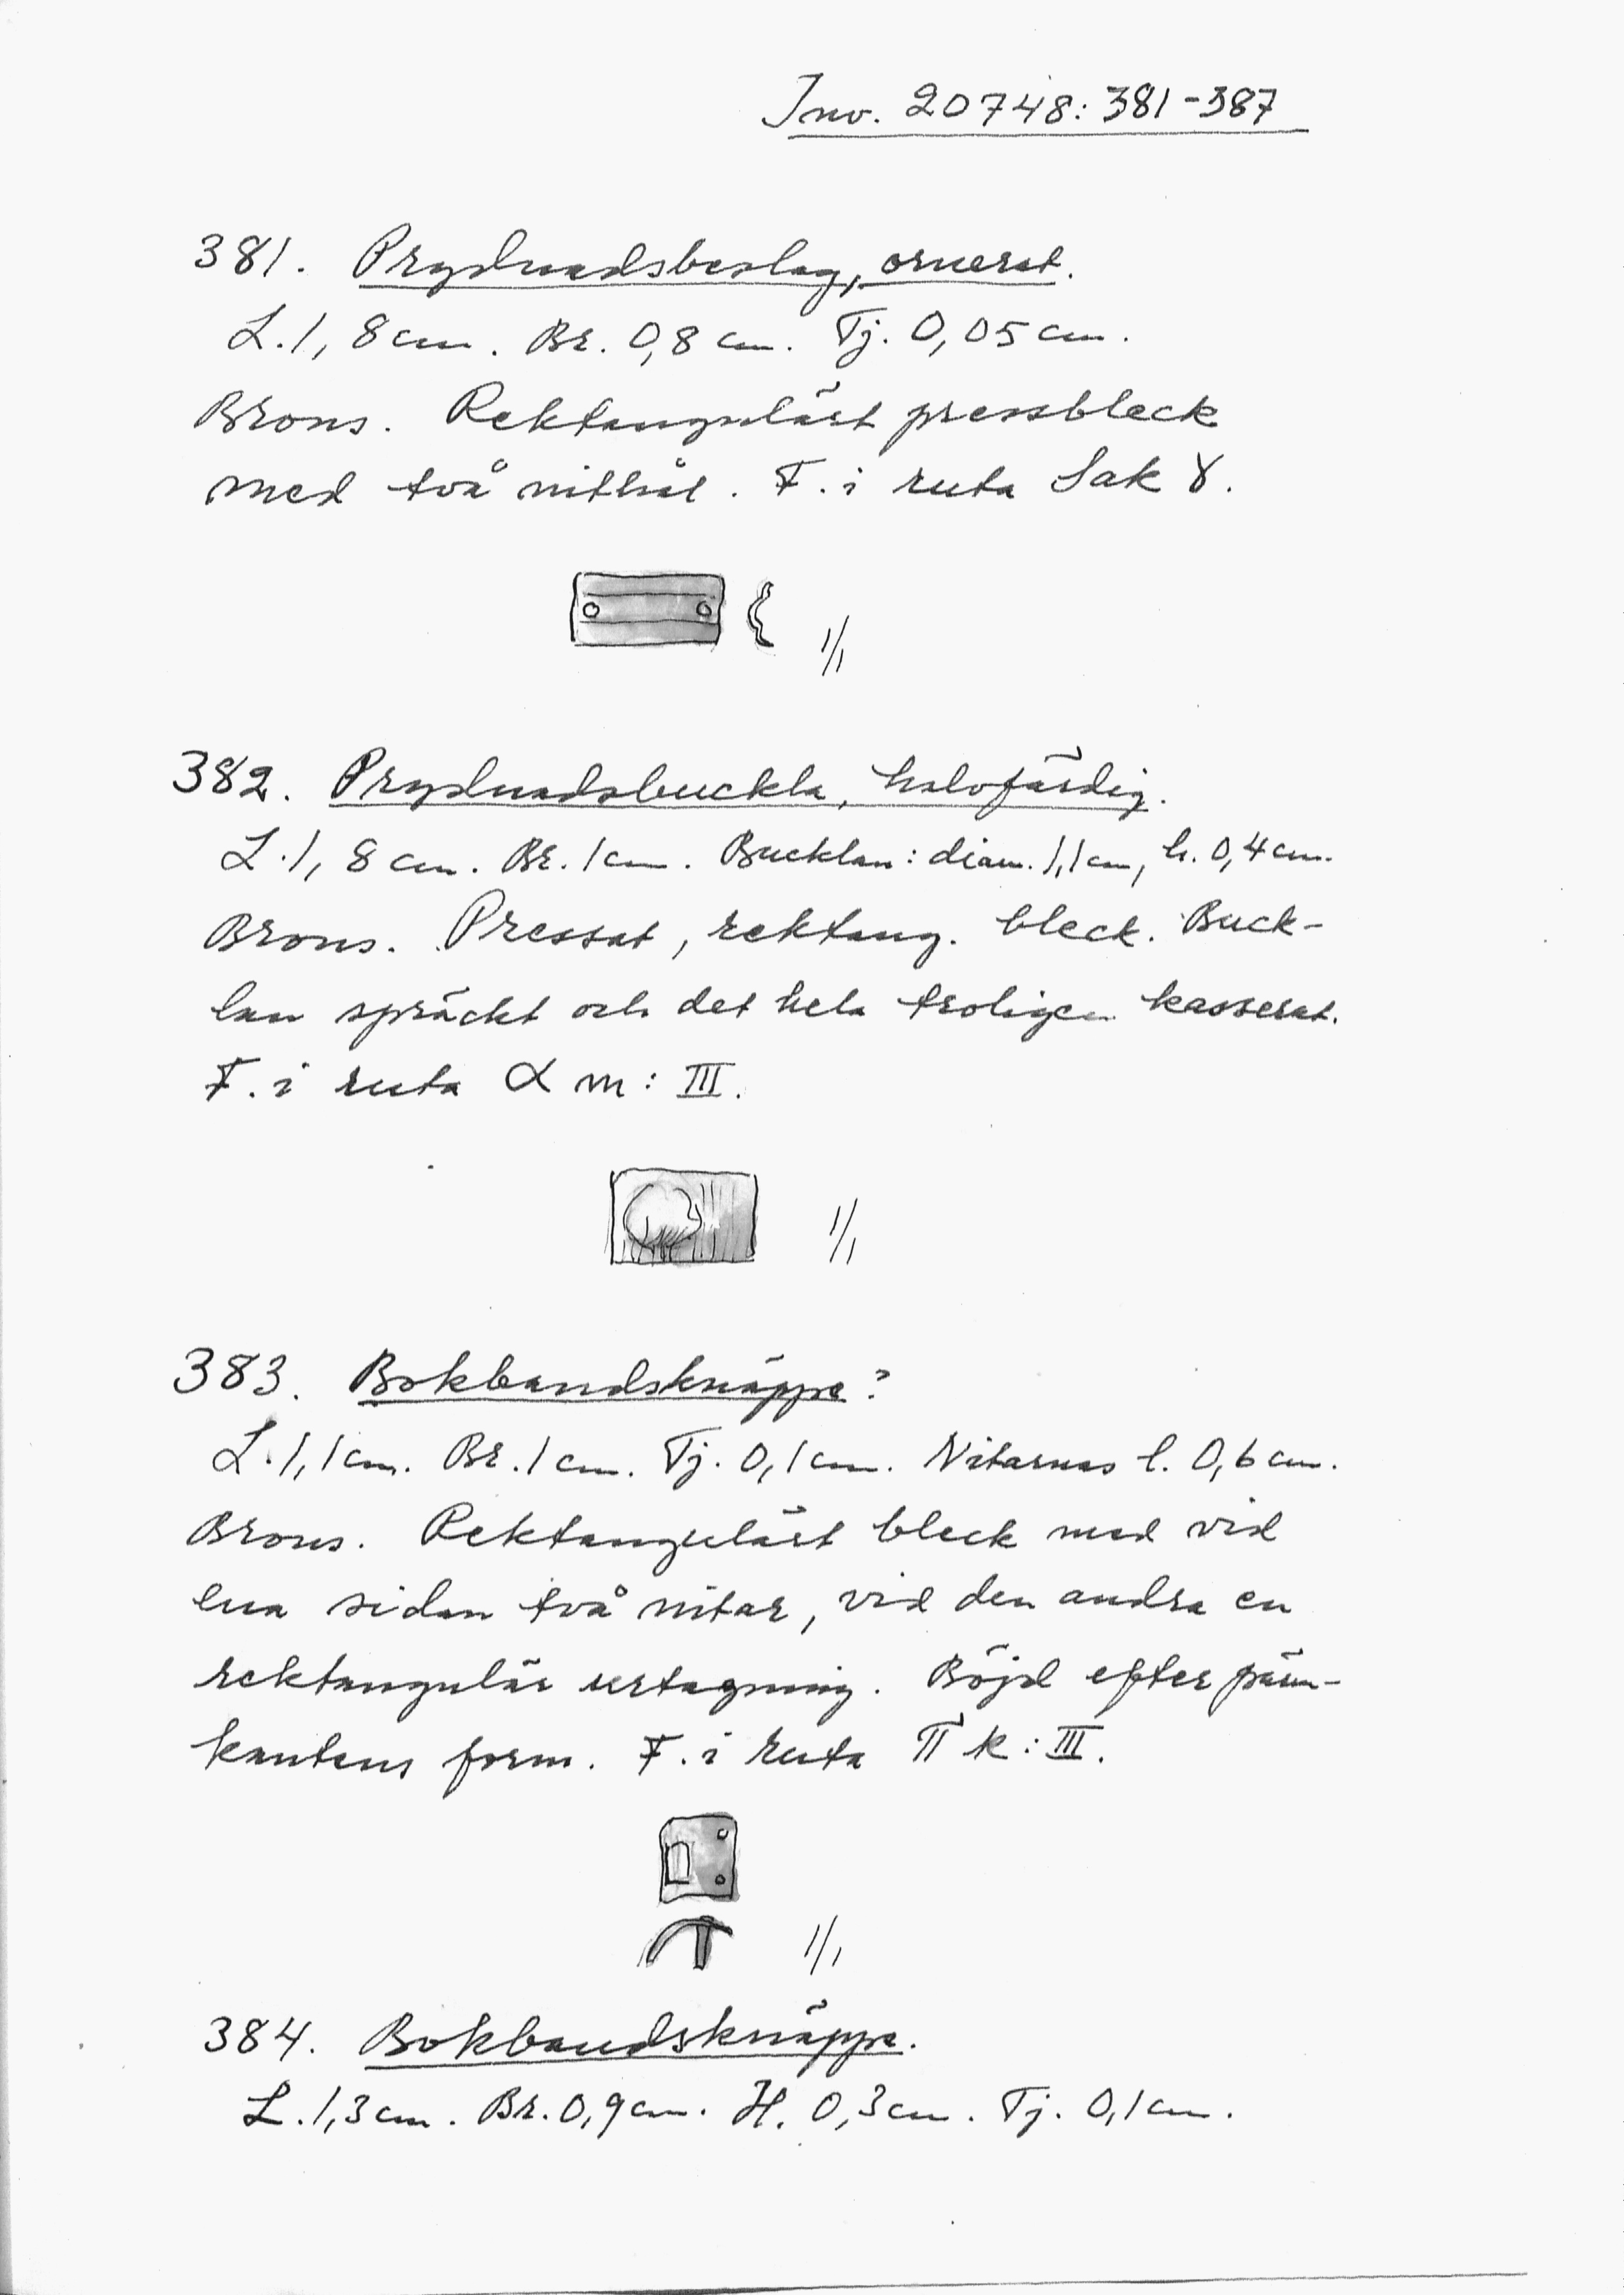 Inv. 20748: 381-387
381. Prydnadsbeslag, ornerat.
L. 1,8 cm. Br. 0,8 cm. Tj. 0,05 cm.
Brons. Rektangulärt pressbleck
med två nithål. F. i ruta Sak 8.
1/1
382. Prydnadsbuckla, halvfärdig.
L. 1,8 cm. Br. 1 cm. Bucklan: diam. 1,1 cm, h. 0,4 cm.
Brons. Pressat, rektang. bleck. Buck-
lan spräckt och det hela troligen kasserat.
F. i ruta α m: III.
1/1
383. Bokbandsknäppe?
L. 1,1 cm. Br. 1 cm. Tj. 0,1 cm. Nitarnas l. 0,6 cm.
Brons. Rektangulärt bleck med vid
ena sidan två nitar, vid den andra en
rektangulär urtagning. Böjd efter pärm-
kantens form. F. i ruta π k: III.
1/1
384. Bokbandsknäppe.
L. 1,3 cm. Br. 0,9 cm. H. 0,3 cm. Tj. 0,1 cm.